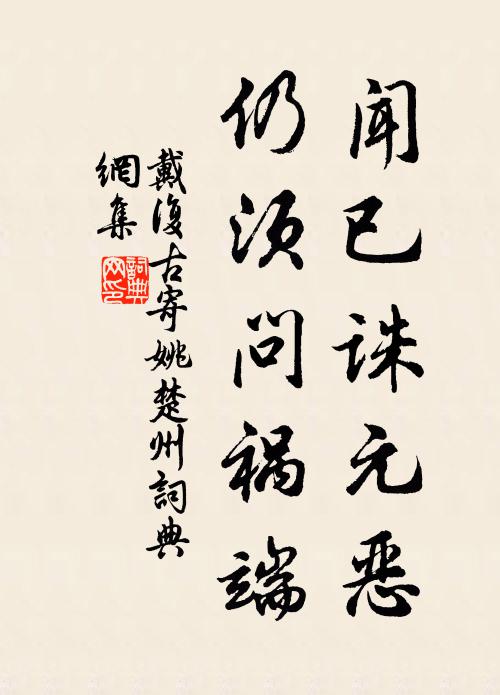 闻已誅元恶
仍须问祸端
戴復古寄姚楚州詞典
網集
詞典
网印